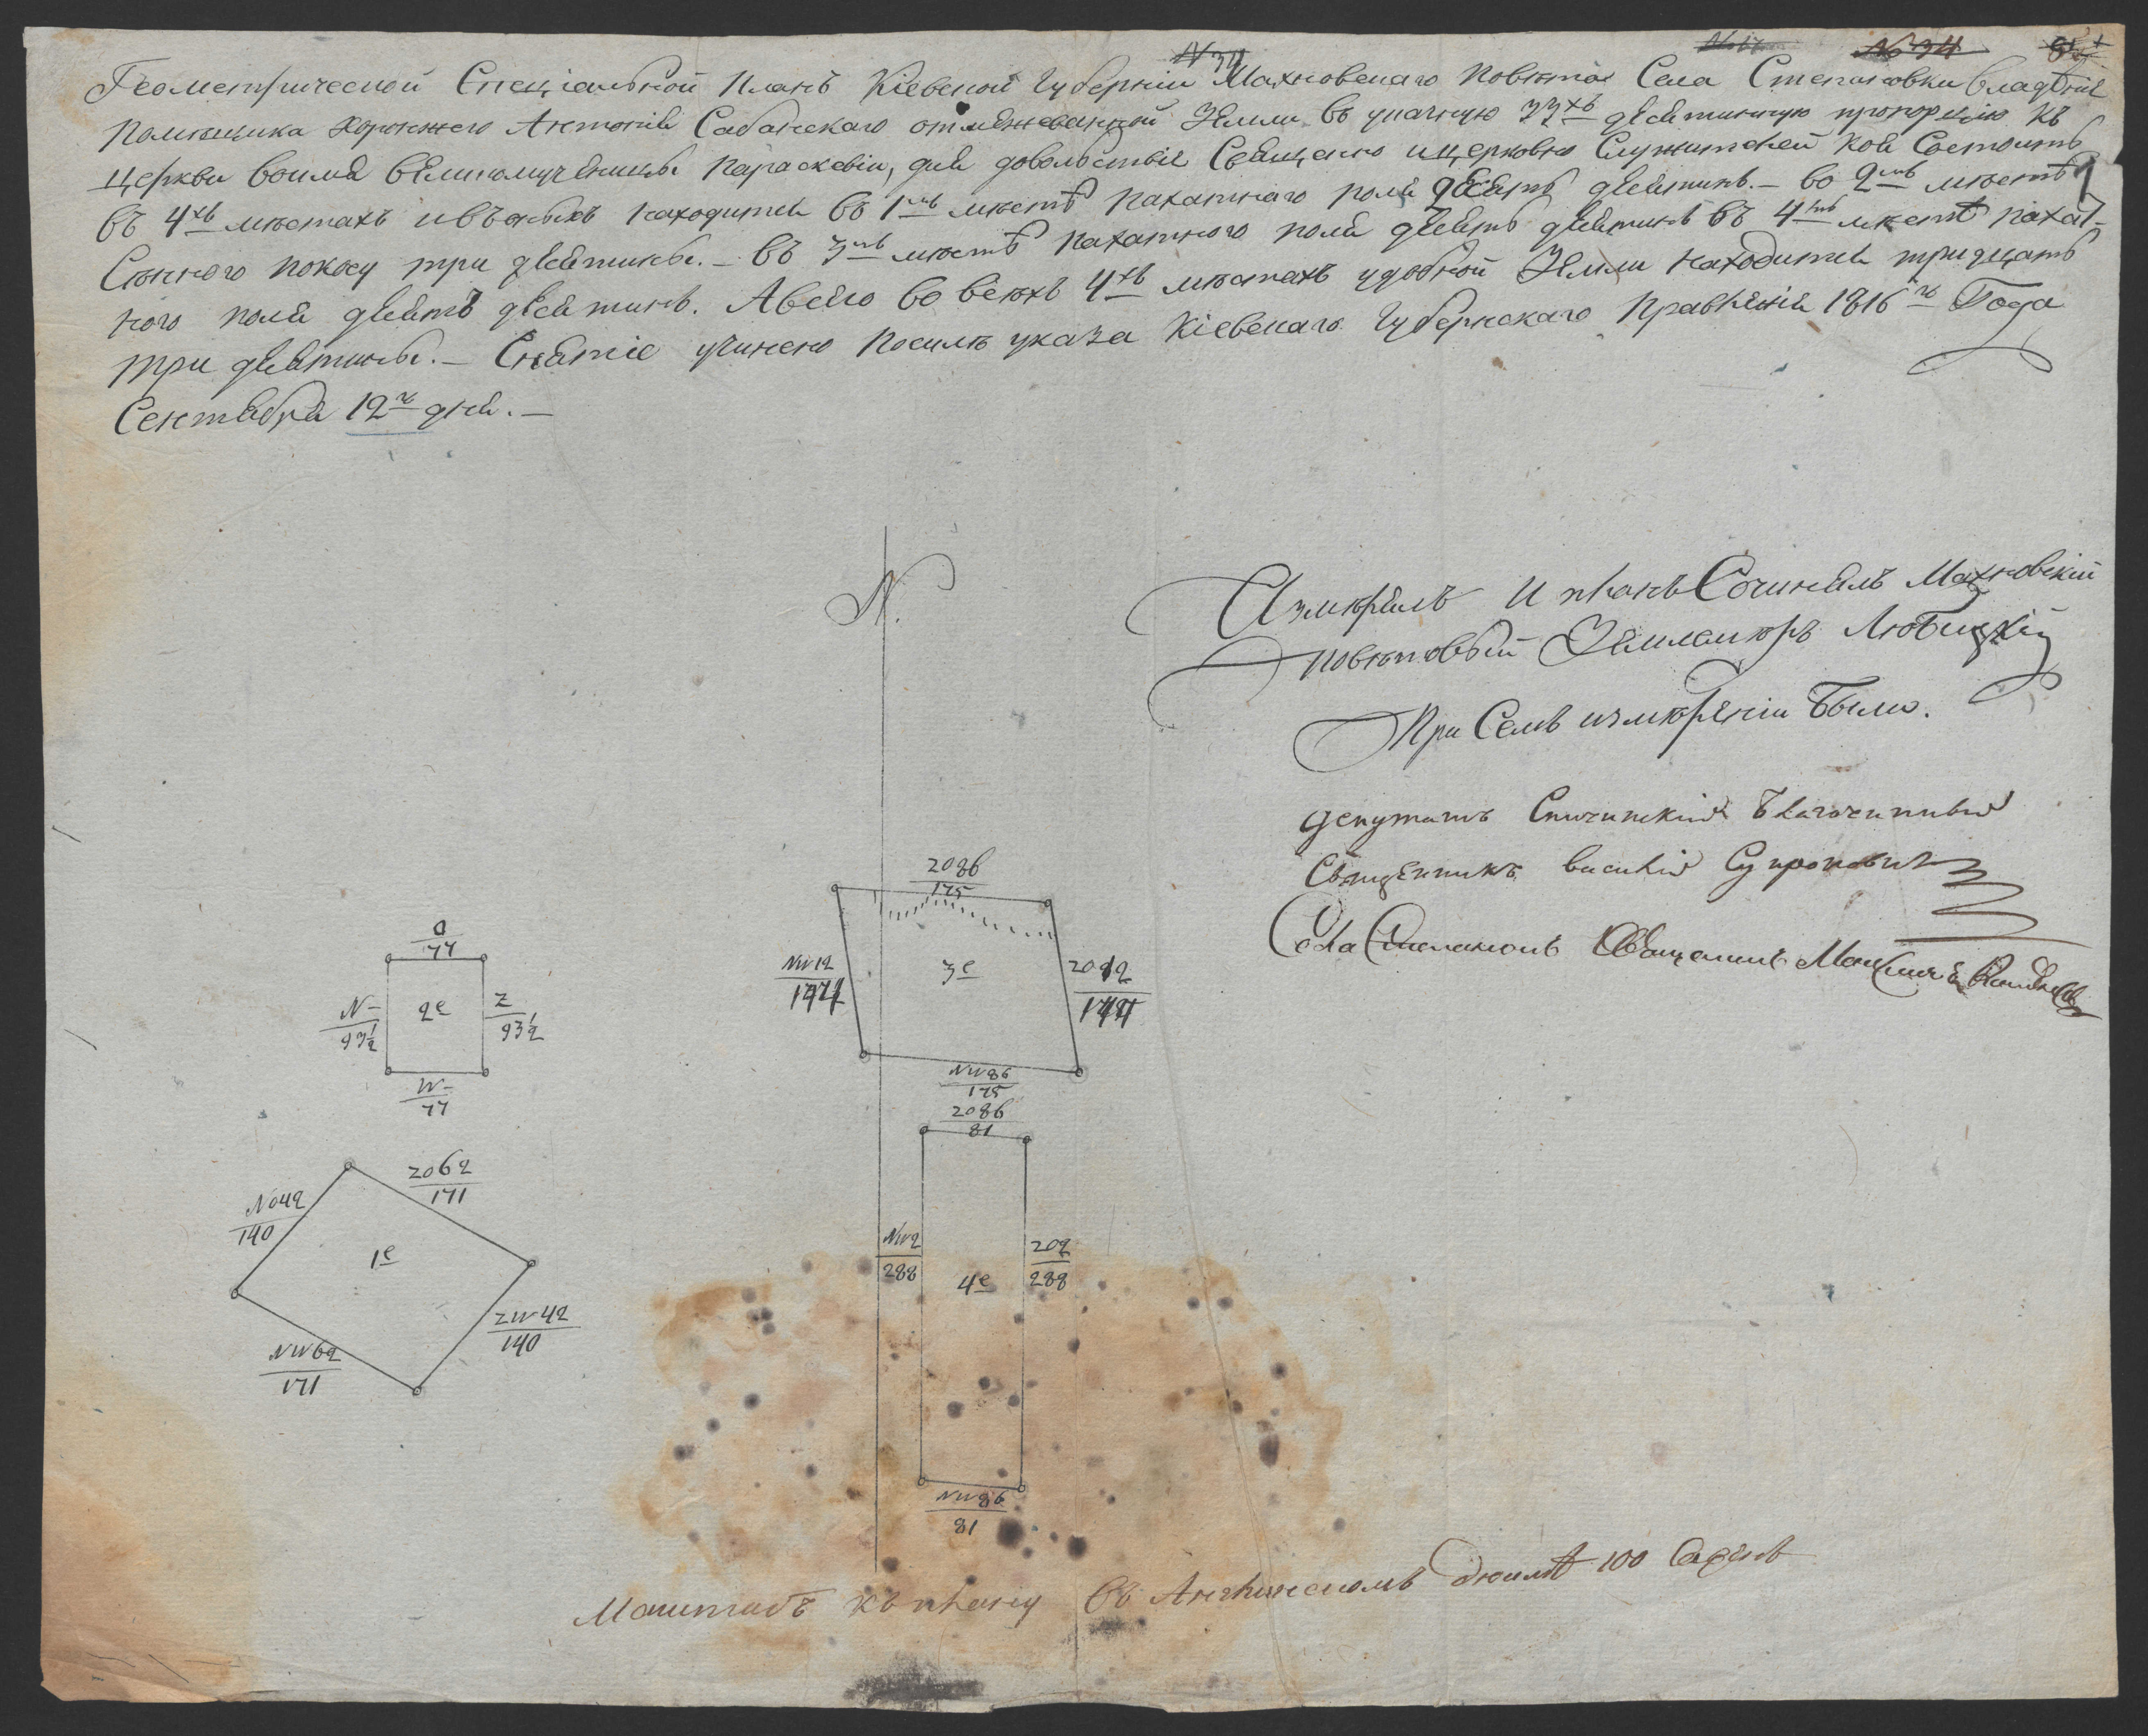 N 34
№ 34
Геометрической Спеціальной Планъ Кіевской Губерніи Махновскаго Повѣта Села Степановки владѣнія
помѣщика хорунжего Антонія Сабанскаго отмежеванной Земли въ указную 33хъ десятинную пропорцію къ
церкви воимя великомученицы Параскевіи, для довольствія Священо ицерковно Служителей кои Состоитъ
въ 4хъ мѣстахъ изъ коихъ находится въ 1мъ мѣстѣ пахатнаго поля десять десятинъ. – во 2мъ мѣстѣ
Сѣнного покосу три десятины. – въ 3мъ мѣстѣ пахатного поля десять десятинъ въ 4мъ мѣстѣ пахат-
ного поля десять десятинъ. А всего во всѣхъ 4хъ мѣстахъ удобной Земли находится тридцать
три десятины. – Снятіе учинено посилѣ указа Кіевскаго Губернскаго Правленія 1816го Года
Сентября 12го дня. –
N.
Измѣрялъ И планъ Сочинялъ Махновскій
повѣтовый Землемѣръ Любицкій
При Семъ измѣреніи Были.
депутатъ Спичинскій Благочинный
Священникъ василій
Села Священникъ
2086
175
3е
NW12
2012
NW86
175
O
77
N–
93½
2е
Z
93½
W–
77
2086
81
2062
171
NO42
140
1е
ZW42
140
NW62
171
NW2
288
4е
202
288
NW86
81
Маштабъ къ плану въ Англинскомъ дюймѣ 100 Саженъ